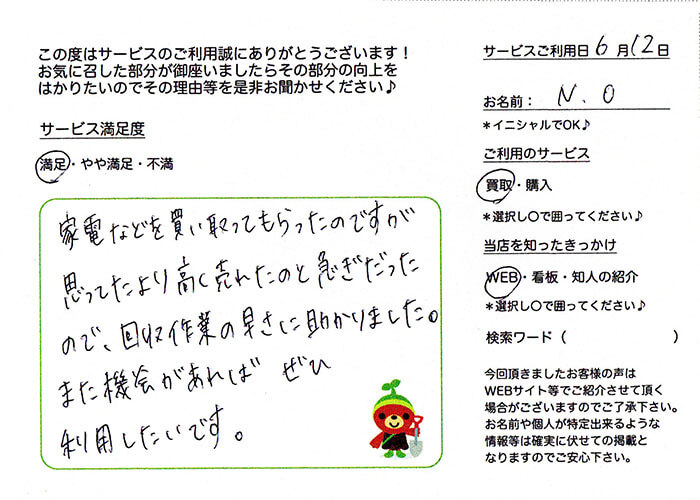 この度はサービスのご利用誠にありがとうございます！
お気に召した部分が御座いましたらその部分の向上を
はかりたいのでその理由等を是非お聞かせください♪
サービス満足度
満足・やや満足・不満
家電などを買い取ってもらったのですが
思ってたより高く売れたのと急ぎだった
ので、回収作業の早さに助かりました。
また機会があれば ぜひ
利用したいです。
サービスご利用日 6月12日
お名前： N.O
*イニシャルでOK♪
ご利用のサービス
買取・購入
*選択し○で囲ってください♪
当店を知ったきっかけ
WEB・看板・知人の紹介
*選択し○で囲ってください♪
検索ワード（ ）
今回頂きましたお客様の声は
WEBサイト等でご紹介させて頂く
場合がございますのでご了承下さい。
お名前や個人が特定出来るような
情報等は確実に伏せての掲載と
なりますのでご安心下さい。